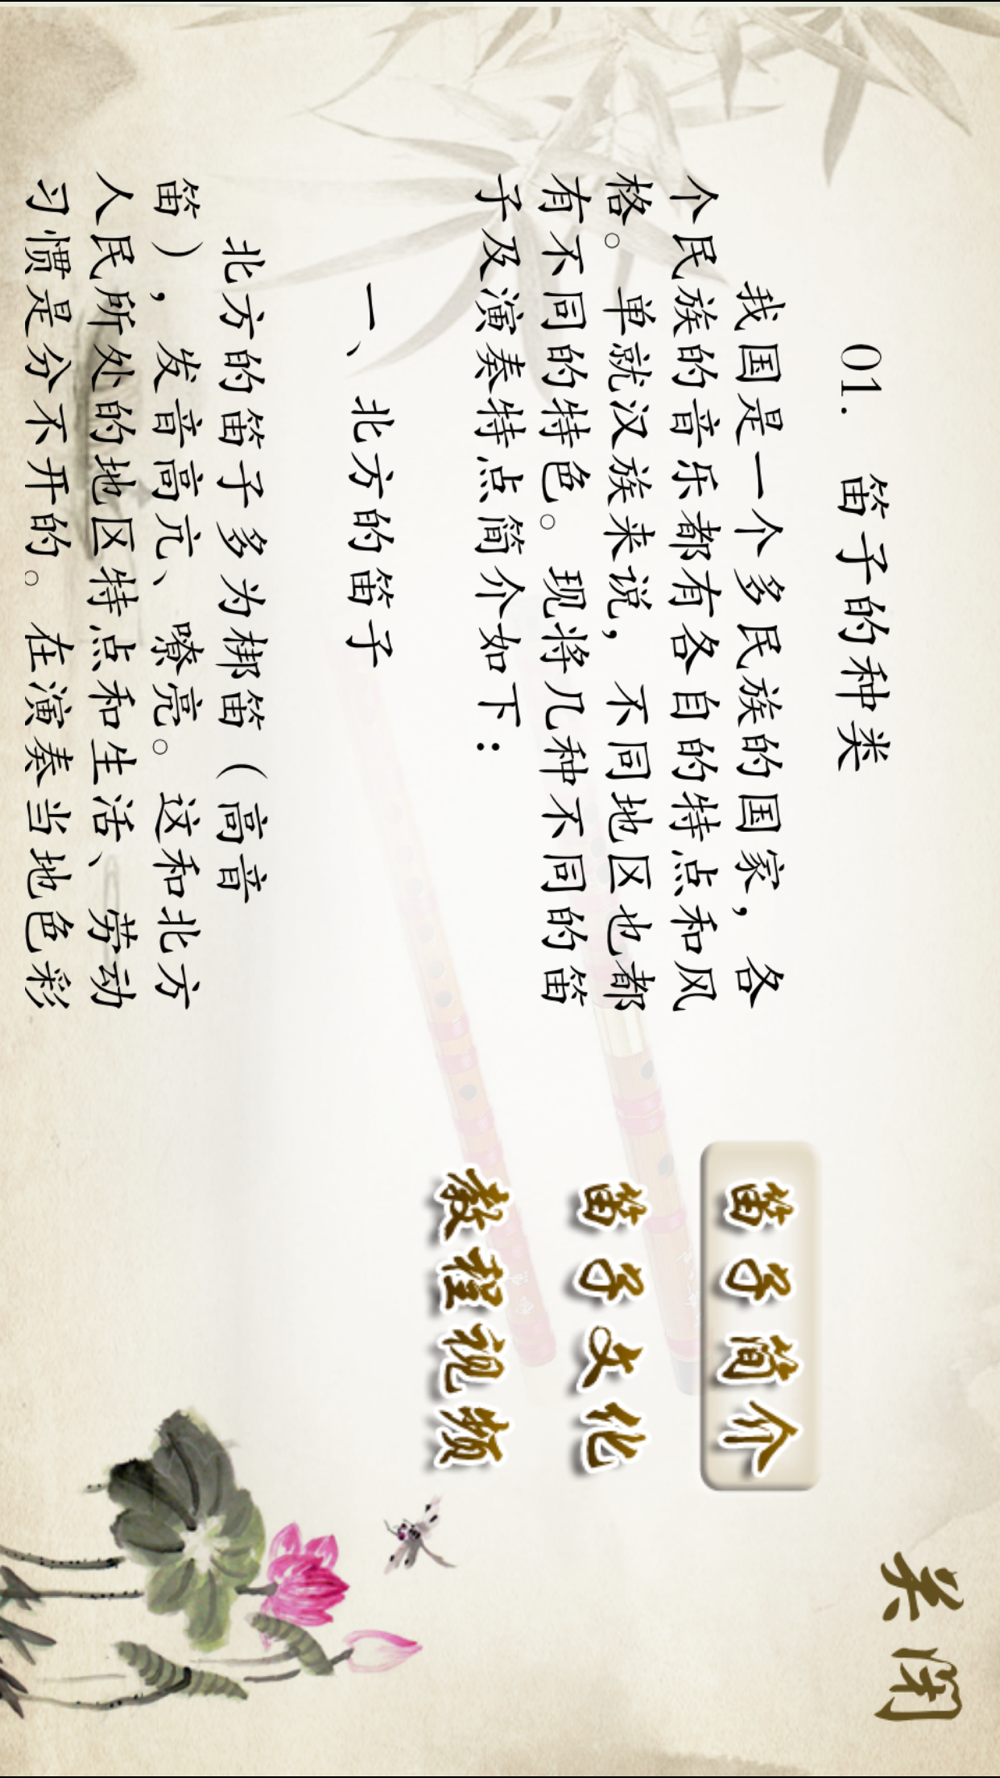 01. 笛子的种类
我国是一个多民族的国家，各
个民族的音乐都有各自的特点和风
格。单就汉族来说，不同地区也都
有不同的特色。现将几种不同的笛
子及演奏特点简介如下：
一、北方的笛子
北方的笛子多为梆笛（高音
笛），发音高亢、嘹亮。这和北方
人民所处的地区特点和生活、劳动
习惯是分不开的。在演奏当地色彩
关闭
笛子简介
笛子文化
教程视频